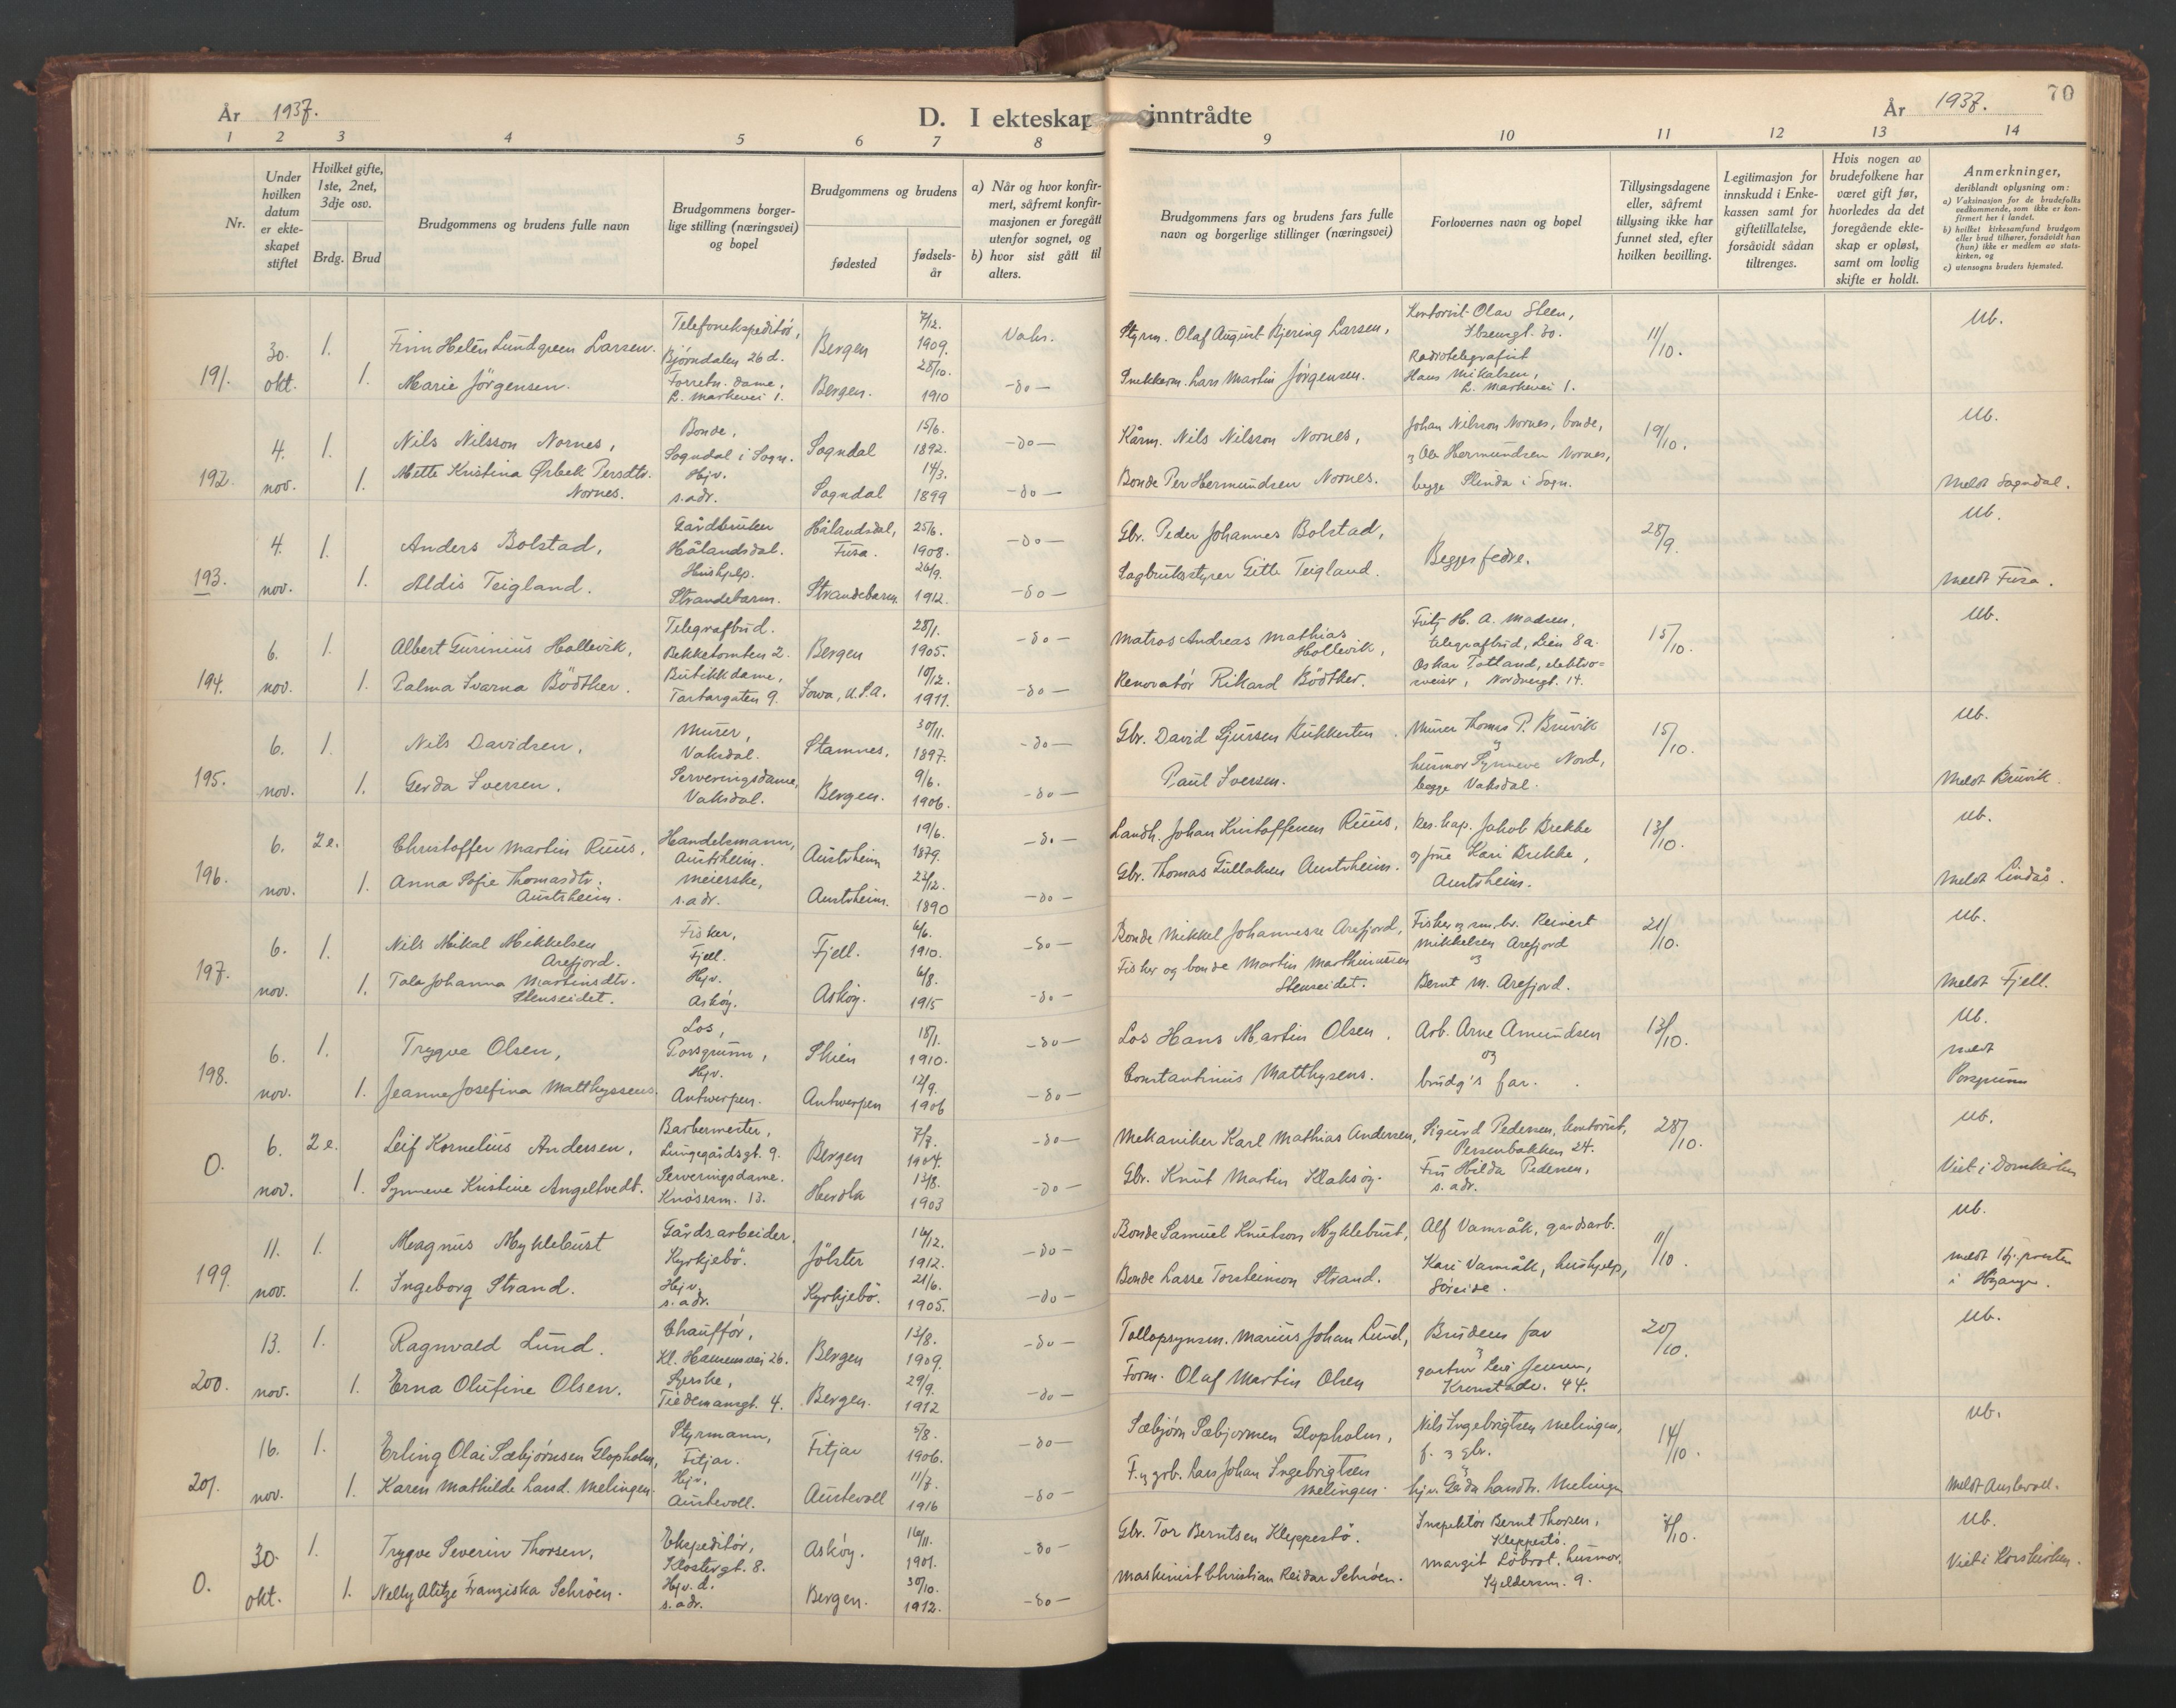 År 1937.
D. I ekteskap inntrådte
År 1937.
70
1 2 3 4 5 6 7 8 9 10 11 12 13 14
Nr.
Under hvilken datum er ekteskapet stiftet
Hvilket gifte, 1ste, 2net, 3dje osv.
Brdg. Brud
Brudgommens og brudens fulle navn
Brudgommens borgerlige stilling (næringsvei) og bopel
Brudgommens og brudens
fødested
fødselsår
a) Når og hvor konfirmert, såfremt konfirmasjonen er foregått utenfor sognet, og
b) hvor sist gått til alters.
Brudgommens fars og brudens fars fulle navn og borgerlige stillinger (næringsvei)
Forlovernes navn og bopel
Tillysingsdagene eller, såfremt tillysing ikke har funnet sted, efter hvilken bevilling.
Legitimasjon for innskudd i Enkekassen samt for giftetillatelse, forsåvidt sådan tiltrenges.
Hvis nogen av brudefolkene har været gift før, hvorledes da det foregående ekteskap er opløst, samt om lovlig skifte er holdt.
Anmerkninger,
deriblandt oplysning om:
a) Vaksinasjon for de brudefolks vedkommende, som ikke er konfirmert her i landet.
b) hvilket kirkesamfund brudgom eller brud tilhører, forsåvidt han (hun) ikke er medlem av statskirken, og
c) utensogns bruders hjemsted.
191. 30. okt. 1. Finn Helén Lundgreen Larsen. Telefonekspeditør, Bjørndalen 26 d. Bergen 7/12. 1909. Vaks. Styrm. Olaf August Bjering Larsen, Kontorist Olav Steen, Ibsensgt. 30. 11/10. Ub.
1. Marie Jörgensen. Forretn. dame, L. Markevei 1. Bergen. 28/10. 1910 -do- Snekkerm. Lars Martin Jørgensen. Radiotelegrafist Hans Mikalsen, L. Markevei 1.
192. 4. nov. 1. Nils Nilsson Nornes, Bonde, Sogndal i Sogn. Sogndal 15/6. 1892. -do- Kårm. Nils Nilsson Nornes, Johan Nilsson Nornes, bonde, 19/10. Ub.
1. Mette Kristina Ørbek Persdtr. Nornes. Hjv. s. adr. Sogndal 14/3. 1899 -do- Bonde Per Hermundsen Nornes. og Ole Hermundsen Nornes, begge Slinda i Sogn. Meldt Sogndal.
193. 4. nov. 1. Anders Bolstad, Gårdbruker Hålandsdal. Hålandsdal, Fusa. 25/6. 1908. -do- Gbr. Peder Johannes Bolstad, Begges fedre. 28/9. Ub.
1. Aldis Teigland. Hushjelp. Strandebarm. Strandebarm 26/9. 1912. -do- Sagbruksstyrer Gitle Teigland. meldt Fusa.
194. 6. nov. 1. Albert Gurinius Hollevik, Telegrafbud. Bekketomten 2. Bergen 28/1. 1905. -do- Matros Andreas Mathias Hollevik, Fritz H. A. Madsen, telegrafbud, Lien 8a. 15/10. Ub.
1. Palma Ivarna Bödtker. Butikkdame, Tartargaten 9. Iowa, U.S.A. 10/12. 1911. -do- Renovatör Rikard Bödtker. Oskar Totland, elektrosveiser, Nordnesgt. 14.
195. 6. nov. 1. Nils Davidsen, Murer, Vaksdal. Stamnes. 30/11. 1897. -do- Gbr. David Sjursen Murer Thomas P. Bruvik 15/10. Ub.
1. Gerda Iversen. Serveringsdame, Vaksdal. Bergen. 9/6. 1906. -do- Paul Iversen. og husmor Synneve Nord, begge Vaksdal. Meldt Bruvik.
196. 6. nov. 2 e. Christoffer Martin Ruus, Handelsmann, Austrheim. Austrheim 19/6. 1879. -do- Landh. Johan Kristoffersen Ruus, Res. kap. Jakob Brekke 13/10. Ub.
1. Anna Sofie Thomasdtr. Austrheim. Meierske, s. adr. Austrheim. 1890 -do- Gbr. Thomas Gullaksen Austrheim. og frue Kari Brekke, Austrheim. Meldt Lindås.
197. 6. nov. 1. Nils Mikal Mikkelsen Arefjord. Fisker, Fjell. Fjell. 6/6. 1910. -do- Bonde Mikkel Johannesse Arefjord, Fisker og sm.br. Reinert Mikkelsen Arefjord 21/10. Ub.
1. Tala Johanna Martinsdtr. Stenseidet. Hjv. Askøy. Askøy. 6/8. 1915 -do- Fisker og bonde Martin Marthinussen Stenseidet. og Bernt M. Arefjord. Meldt Fjell.
198. 6. nov. 1. Trygve Olsen, Los, Porsgrunn, Skien 18/1. 1910. -do- Los Hans Martin Olsen. Arb. Arne Amundsen 13/10. Ub. meldt Porsgrunn
1. Jeanne Josefina Matthyssens. Hjv. Antwerpen. Antwerpen 12/9. 1906 -do- Constantinus Matthysens. og brudg's far.
0. 6. nov. 2 e. Leif Kornelius Andersen, Barbermester, Lungegårdsgt. 9. Bergen 7/7. 1904. -do- Mekaniker Karl Mathias Andersen, Sigurd Pedersen, kontorist, Persenbakken 24. 28/10. Ub.
1. Synneve Kristine Angeltvedt. Serveringsdame. Knøsesm. 13. Herdla 13/8. 1903 -do- Gbr. Knut Martin Klaksøy. Fru Hilda Pedersen, s. adr. Viet i Domkirken
199. 11. nov. 1. Magnus Myklebust Gårdsarbeider. Kyrkjebö. Jölster 16/12. 1912. -do- Bonde Samuel Knutson Myklebust, Alf Vamråk, gardsarb. 11/10. Ub.
1. Ingeborg Strand. Hjv. s. adr. Kyrkjebö. 21/6. 1905. -do- Bonde Lasse Torsteinson Strand. Kari Vamråk, hushjelp, Søreide.
200. 13. nov. 1. Ragnvald Lund. Chauffør, Kl. Hansensvei 26. Bergen 13/8. 1909. -do- Tollopsynsm. Marius Johan Lund, Brudens far 20/10. Ub.
1. Erna Olufine Olsen. Syerske, Tiedemansgt. 4. Bergen. 29/9. 1912 -do- Form. Olaf Martin Olsen og gartner Leif Jensen, Kronstadv. 44.
201. 16. nov. 1. Erling Olai Sæbjørnsen Glopholm, Styrmann, Fitjar. Fitjar 5/8. 1906. -do- Sæbjørn Sæbjørnsen Glopholm, Nils Ingebrigtsen Melingen, f. og gbr. 14/10. Ub.
1. Karen Mathilde Larsd. Melingen. Hjv. Austevoll. Austevoll 11/7. 1916 -do- F. og grb. Lars Johan Ingebrigtsen Melingen. og hjv. Gerda Larsdtr. Melingen Meldt Austevoll.
0. 30. okt. 1. Trygve Severin Thorsen, Ekspeditör, Klostergt. 8. Askøy. 16/11. 1901. -do- Gbr. Tor Berntsen Kleppestö. Inspektör Bernt Thorsen, Kleppestö. Ub.
1. Nelly Alitze Franziska Schröen. Hjv. d. s. adr. Bergen. 30/10. 1912. -do- Maskinist Christian Reidar Schröen. Margit Löbrot, husmor, Skeldersm. 9. Viet i Korskirken.